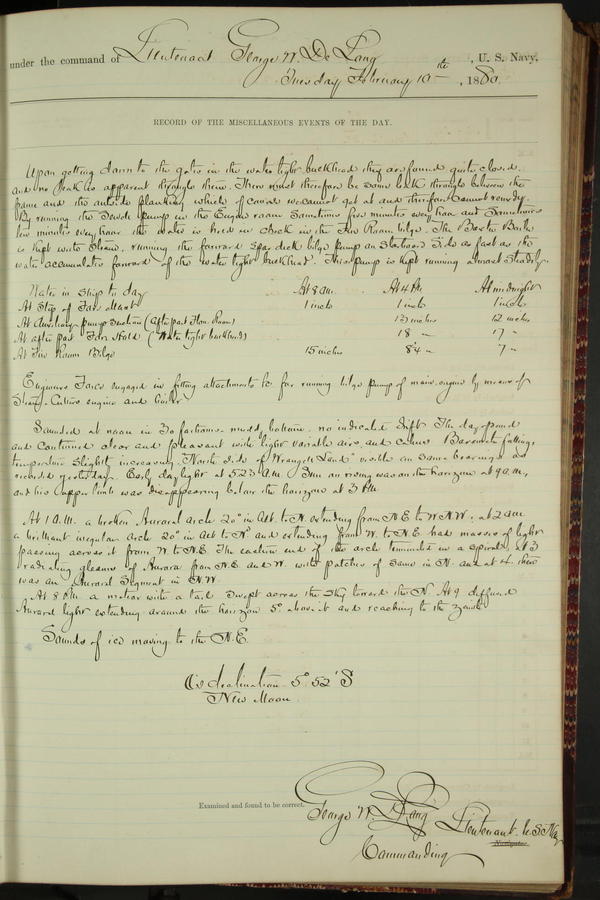 under the command of Lieutenant George W. De Long, U. S. Navy,
Tuesday February 10th, 1880.
RECORD OF THE MISCELLANEOUS EVENTS OF THE DAY.
Upon getting down to the gates in the water tight bulkhead they are found quite closed
and no leak is apparent through them. There must therefore be some leak through between the
frame and the outside planking which of course we cannot get at and therefore cannot remedy.
By running the Sewell pump in the Engine room sometimes five minutes every hour and sometimes
ten minutes every hour the water is held in check in the Fire Room bilge. The Baxter Boiler
is kept with steam, running the forward spar deck bilge pump on Starboard side as fast as the
water accumulates forward of the water tight bulkhead. This pump is kept running almost steadily.
Water in ship to day At 8 a.m. At 4 P.M. At midnight
At Step of Fore mast 1 inch 1 inch 1 inch
At Auxiliary pump Suction (After part Flour Room) 13 inches 12 inches
At after part Fore Hold (Water tight bulkhead) 18 " 17 "
At Fire Room Bilge 15 inches 8¼ " 7 "
Engineers Force engaged in fitting attachments &c for running bilge pump of main engine by means of
Steam-Cutters engine and boiler
Sounded at noon in 30 fathoms. mud bottom, no indicated drift. The day opened
and continued clear and pleasant with light variable airs, and calms. Barometer falling,
temperature slightly increasing. North side of Wrangel Land visible on same bearings as
recorded yesterday. Early daylight at 5.23 a.m. Sun on rising was on the horizon at 9 a.m,
and his upper limb was disappearing below the horizon at 3 P.M.
At 1 A.M. a broken Auroral arch 20° in Alt. to N. extending from N.E. to W.N.W; at 2 a.m
a brilliant irregular arch 20° in Alt to N° and extending from W. to N.E. had masses of light
passing across it from W. to N.E. The eastern end of the arch terminated in a spiral; at 3
radiating gleams of Aurora from N.E. and W. with patches of same in N. and at 4. there
was an Auroral Segment in N.W.
At 8 P.M. a meteor with a tail swept across the sky toward the N. At 9 diffused
Auroral light extending around the horizon 5° above it and reaching to the zenith
Sounds of ice moving to the N.E.
declination 5° 52' S
New Moon.
Examined and found to be correct.
George W. De Long Lieutenant. U.S. Navy
Navigator.
Commanding